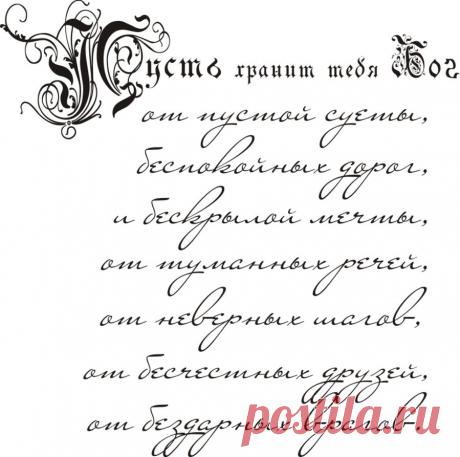 Пусть хранит тебя Бог
от пустой суеты,
беспокойных дорог,
и бескрылой мечты,
от туманных речей,
от неверных шагов,
от бесчестных друзей,
от бездарных врагов.
postila.ru